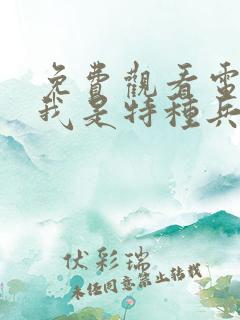 免費觀看電
我是特種兵
伏彩瑞
未经同意禁止转载